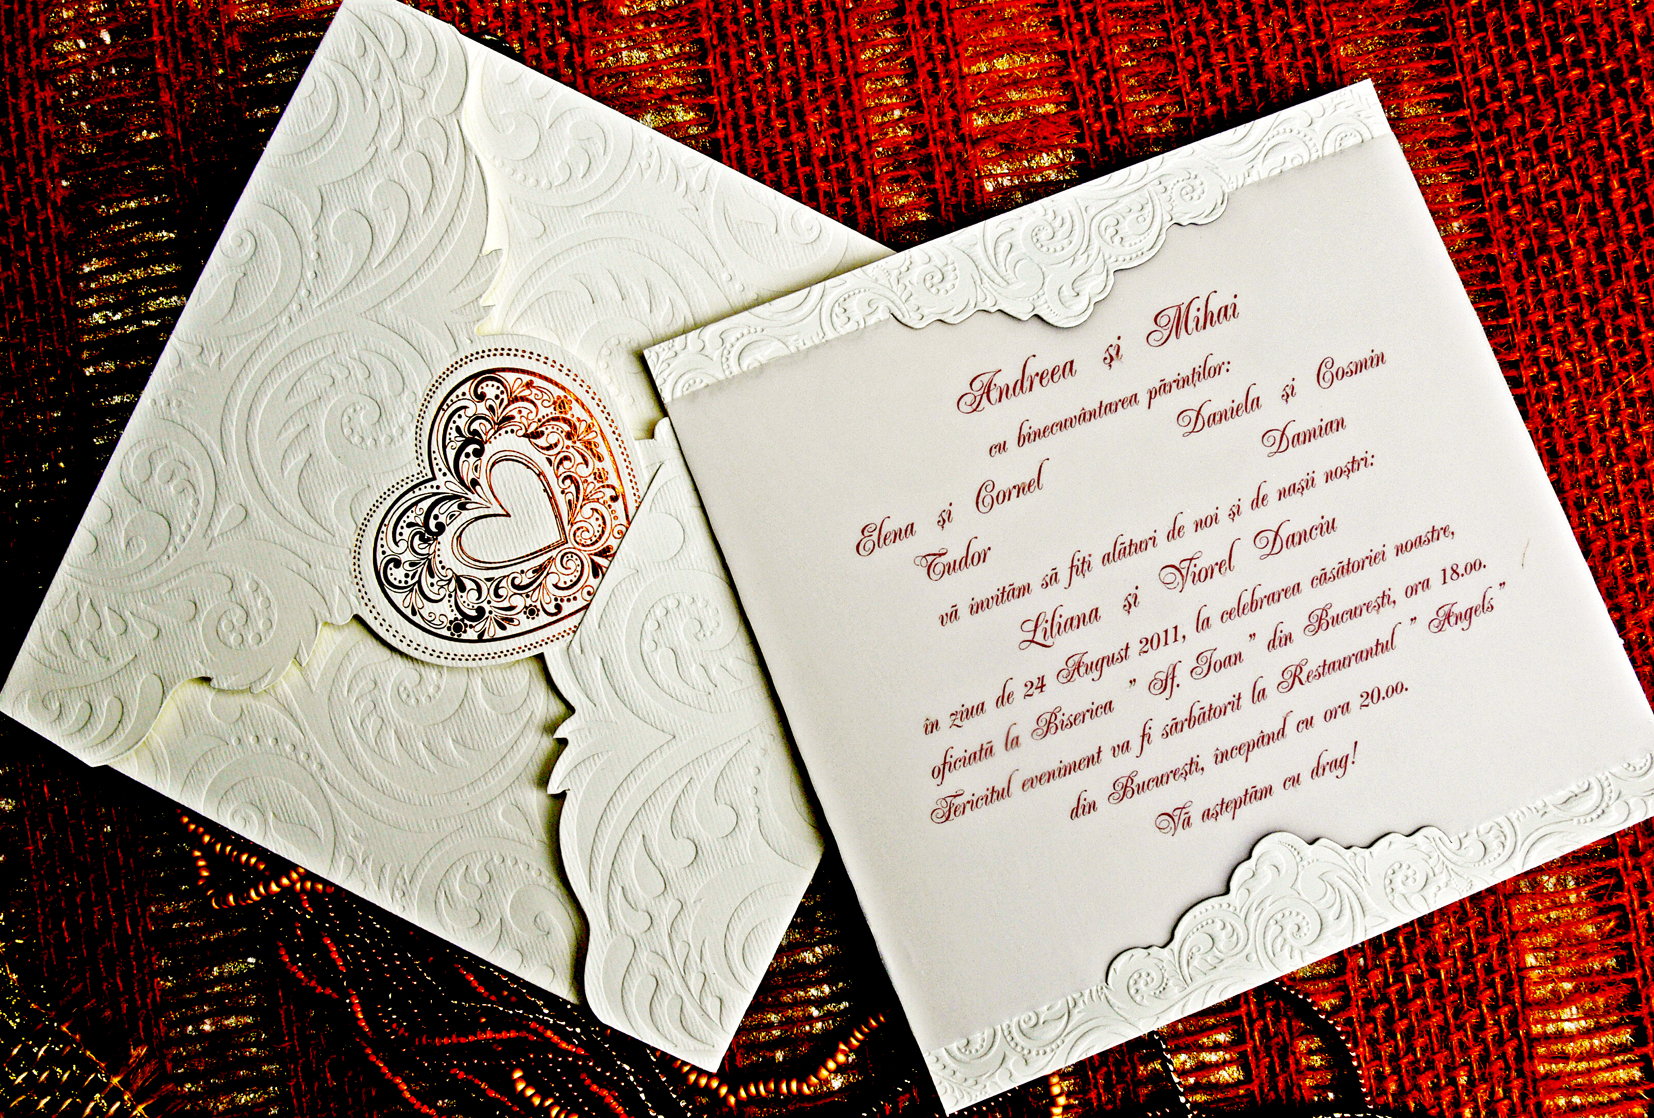 Andreea şi Mihai
cu binecuvântarea părinţilor:
Elena şi Cornel Daniela şi Cosmin
Tudor Damian
vă invităm să fiţi alături de noi şi de naşii noştri:
Liliana şi Viorel Danciu
în ziua de 24 August 2011, la celebrarea căsătoriei noastre,
oficiată la Biserica " Sf. Ioan " din Bucureşti, ora 18.oo.
Fericitul eveniment va fi sărbătorit la Restaurantul " Angels "
din Bucureşti, începând cu ora 20.oo.
Vă aşteptăm cu drag!